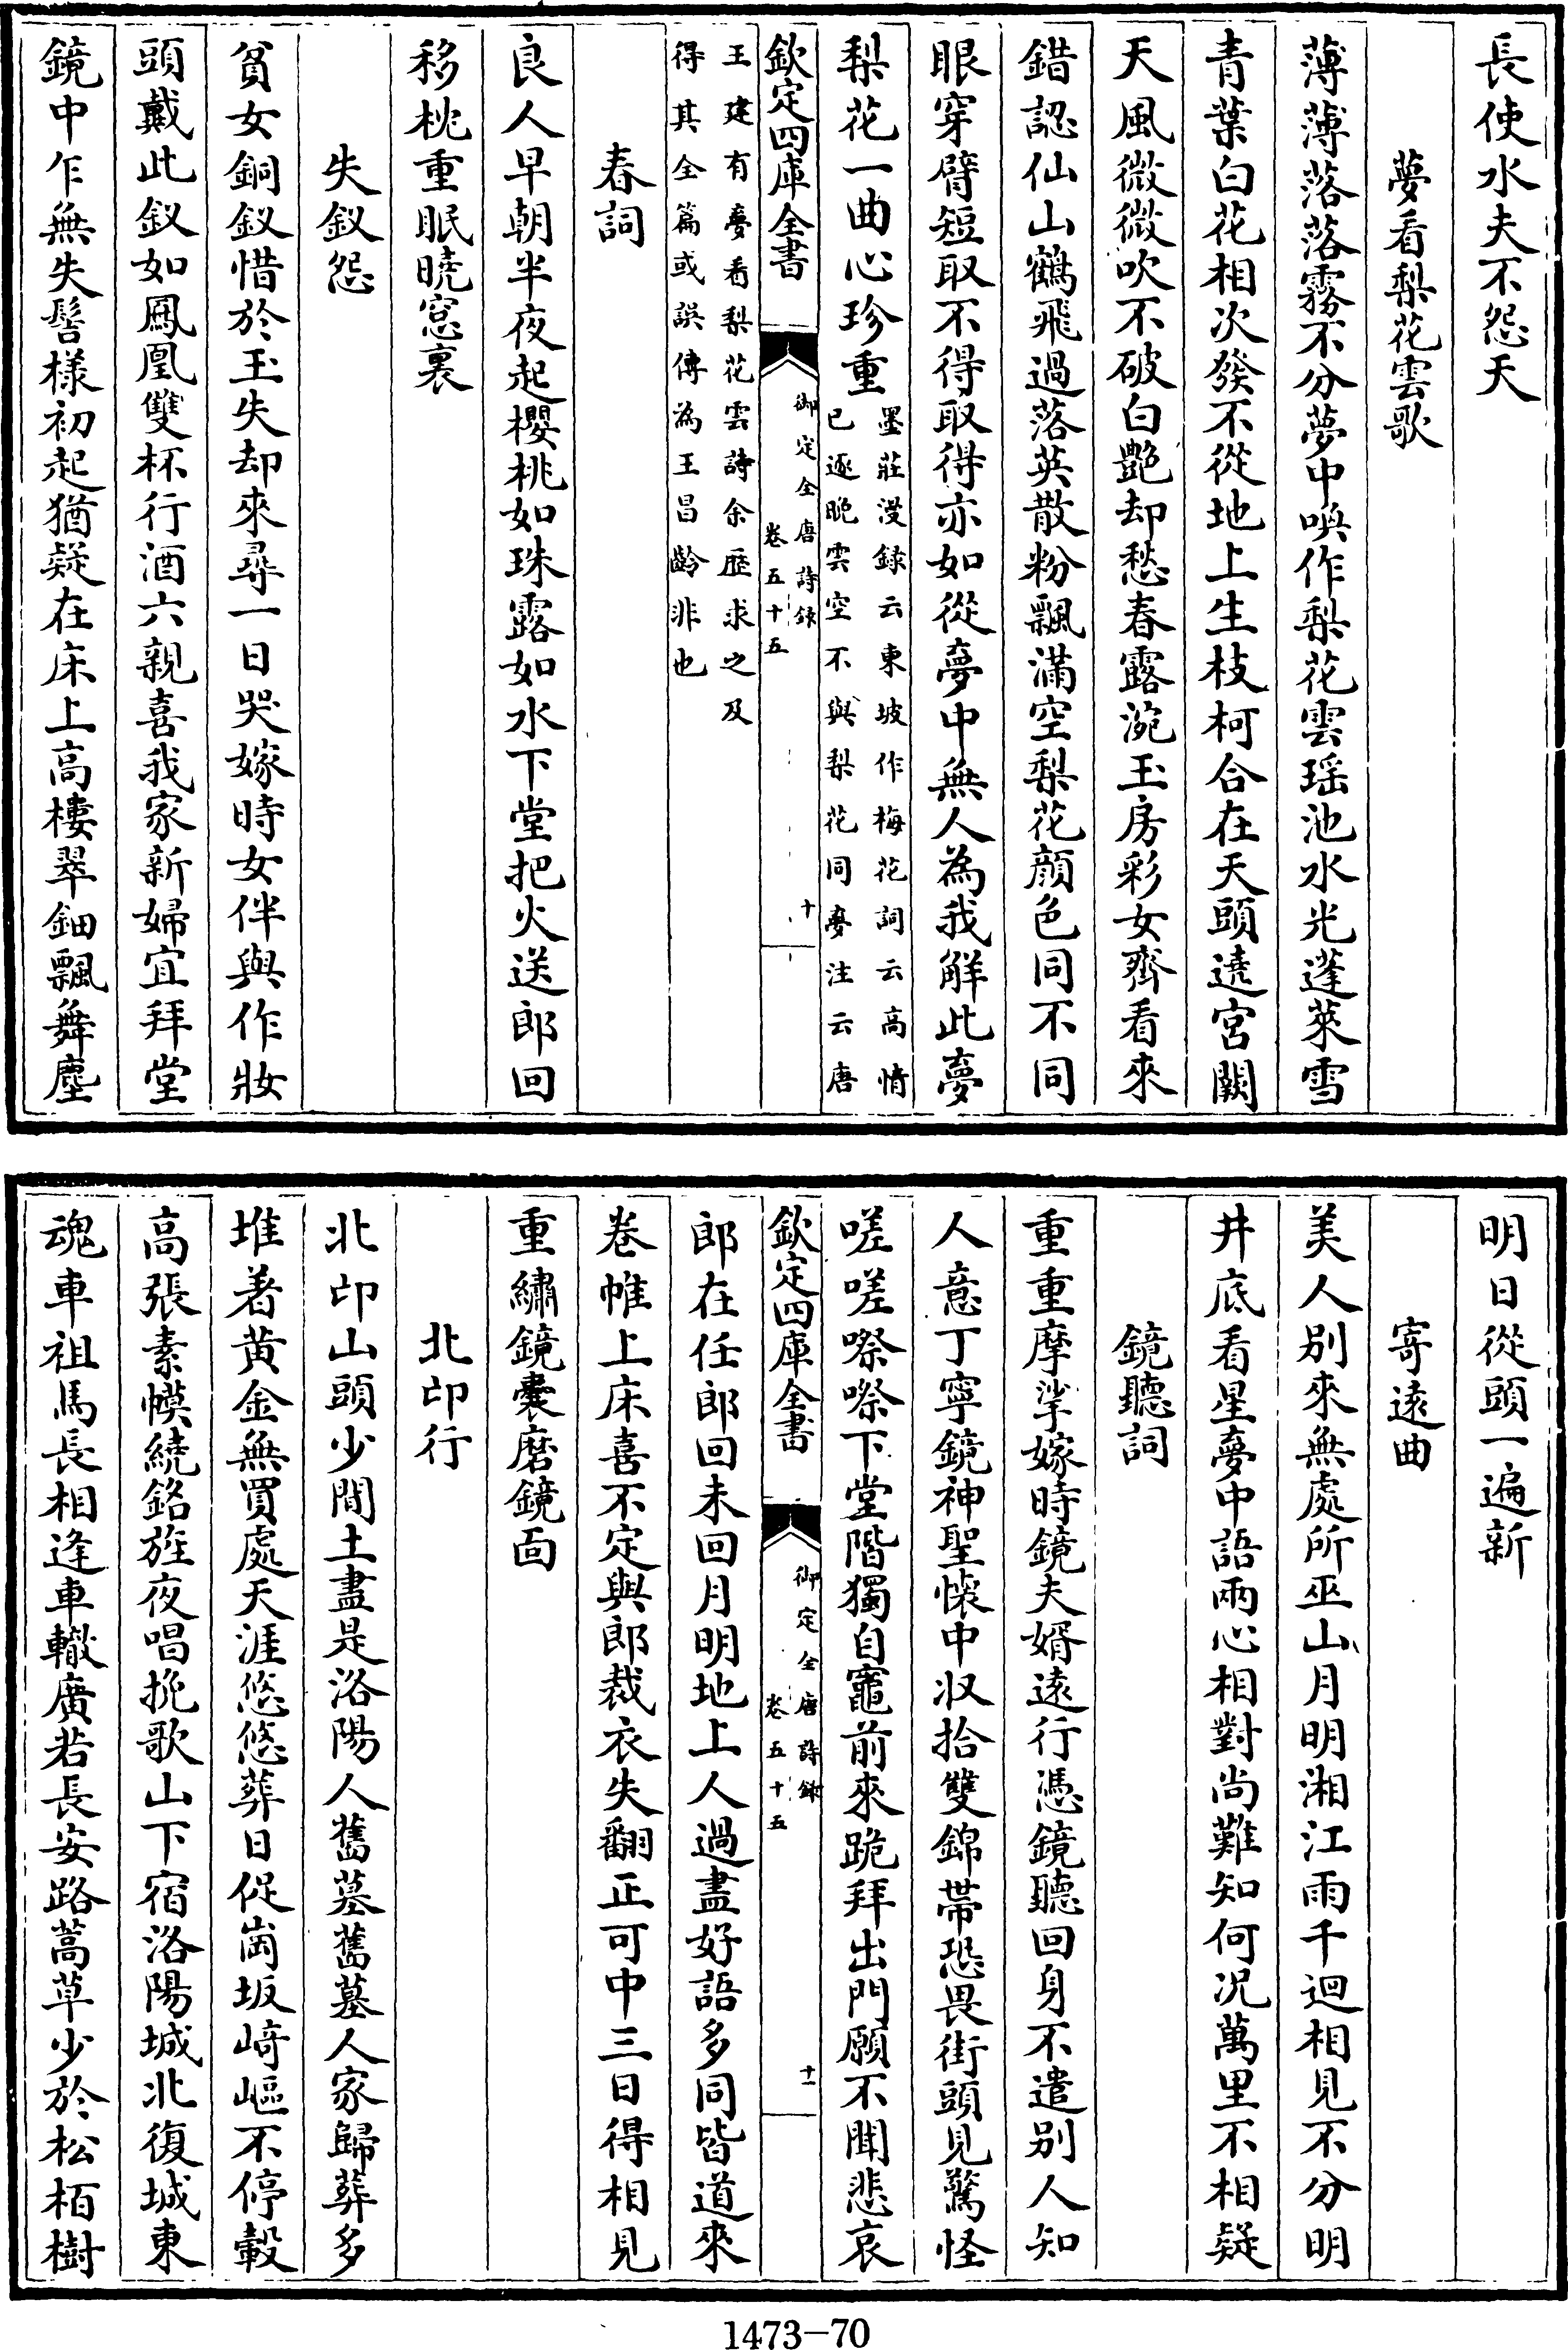 長使水夫不怨天
夢看梨花雲歌
薄薄落落霧不分夢中喚作梨花雲瑶池水光蓬萊雪
青葉白花相次發不從地上生枝柯合在天頭遶宮闕
天風微微吹不破白艷却愁春露涴玉房彩女齊看來
錯認仙山鶴飛過落英散粉飄滿空梨花顔色同不同
眼穿臂短取不得取得亦如從夢中無人為我解此夢
梨花一曲心珍重墨莊漫録云東坡作梅花詞云高情
已逐曉雲空不與梨花同夢注云唐
欽定四庫全書
御定全唐詩録
卷五十五
十
王建有夢看梨花雲詩余歷求之及
得其全篇或誤傳為王昌齡非也
春詞
良人早朝半夜起櫻桃如珠露如水下堂把火送郎回
移枕重眠曉窓裏
失釵怨
貧女銅釵惜於玉失却來尋一日哭嫁時女伴與作妝
頭戴此釵如鳳凰雙杯行酒六親喜我家新婦宜拜堂
鏡中乍無失髻樣初起猶疑在床上高樓翠鈿飄舞塵
明日從頭一遍新
寄逺曲
美人别來無處所巫山月明湘江雨千迴相見不分明
井底看星夢中語兩心相對尚難知何况萬里不相疑
鏡聽詞
重重摩挲嫁時鏡夫婿逺行憑鏡聽回身不遣别人知
人意丁寧鏡神聖懷中收拾雙錦帶恐畏街頭見驚怪
嗟嗟嚓嚓下堂階獨自竈前來跪拜出門願不聞悲哀
欽定四庫全書
御定全唐詩録
卷五十五
十一
郎在任郎回未回月明地上人過盡好語多同皆道來
卷帷上床喜不定與郎裁衣失翻正可中三日得相見
重繡鏡囊磨鏡面
北邙行
北邙山頭少閒土盡是洛陽人舊墓舊墓人家歸葬多
堆着黄金無買處天涯悠悠葬日促崗坂崎嶇不停轂
高張素幙繞銘旌夜唱挽歌山下宿洛陽城北復城東
魂車祖馬長相逢車轍廣若長安路蒿草少於松栢樹
1473-70